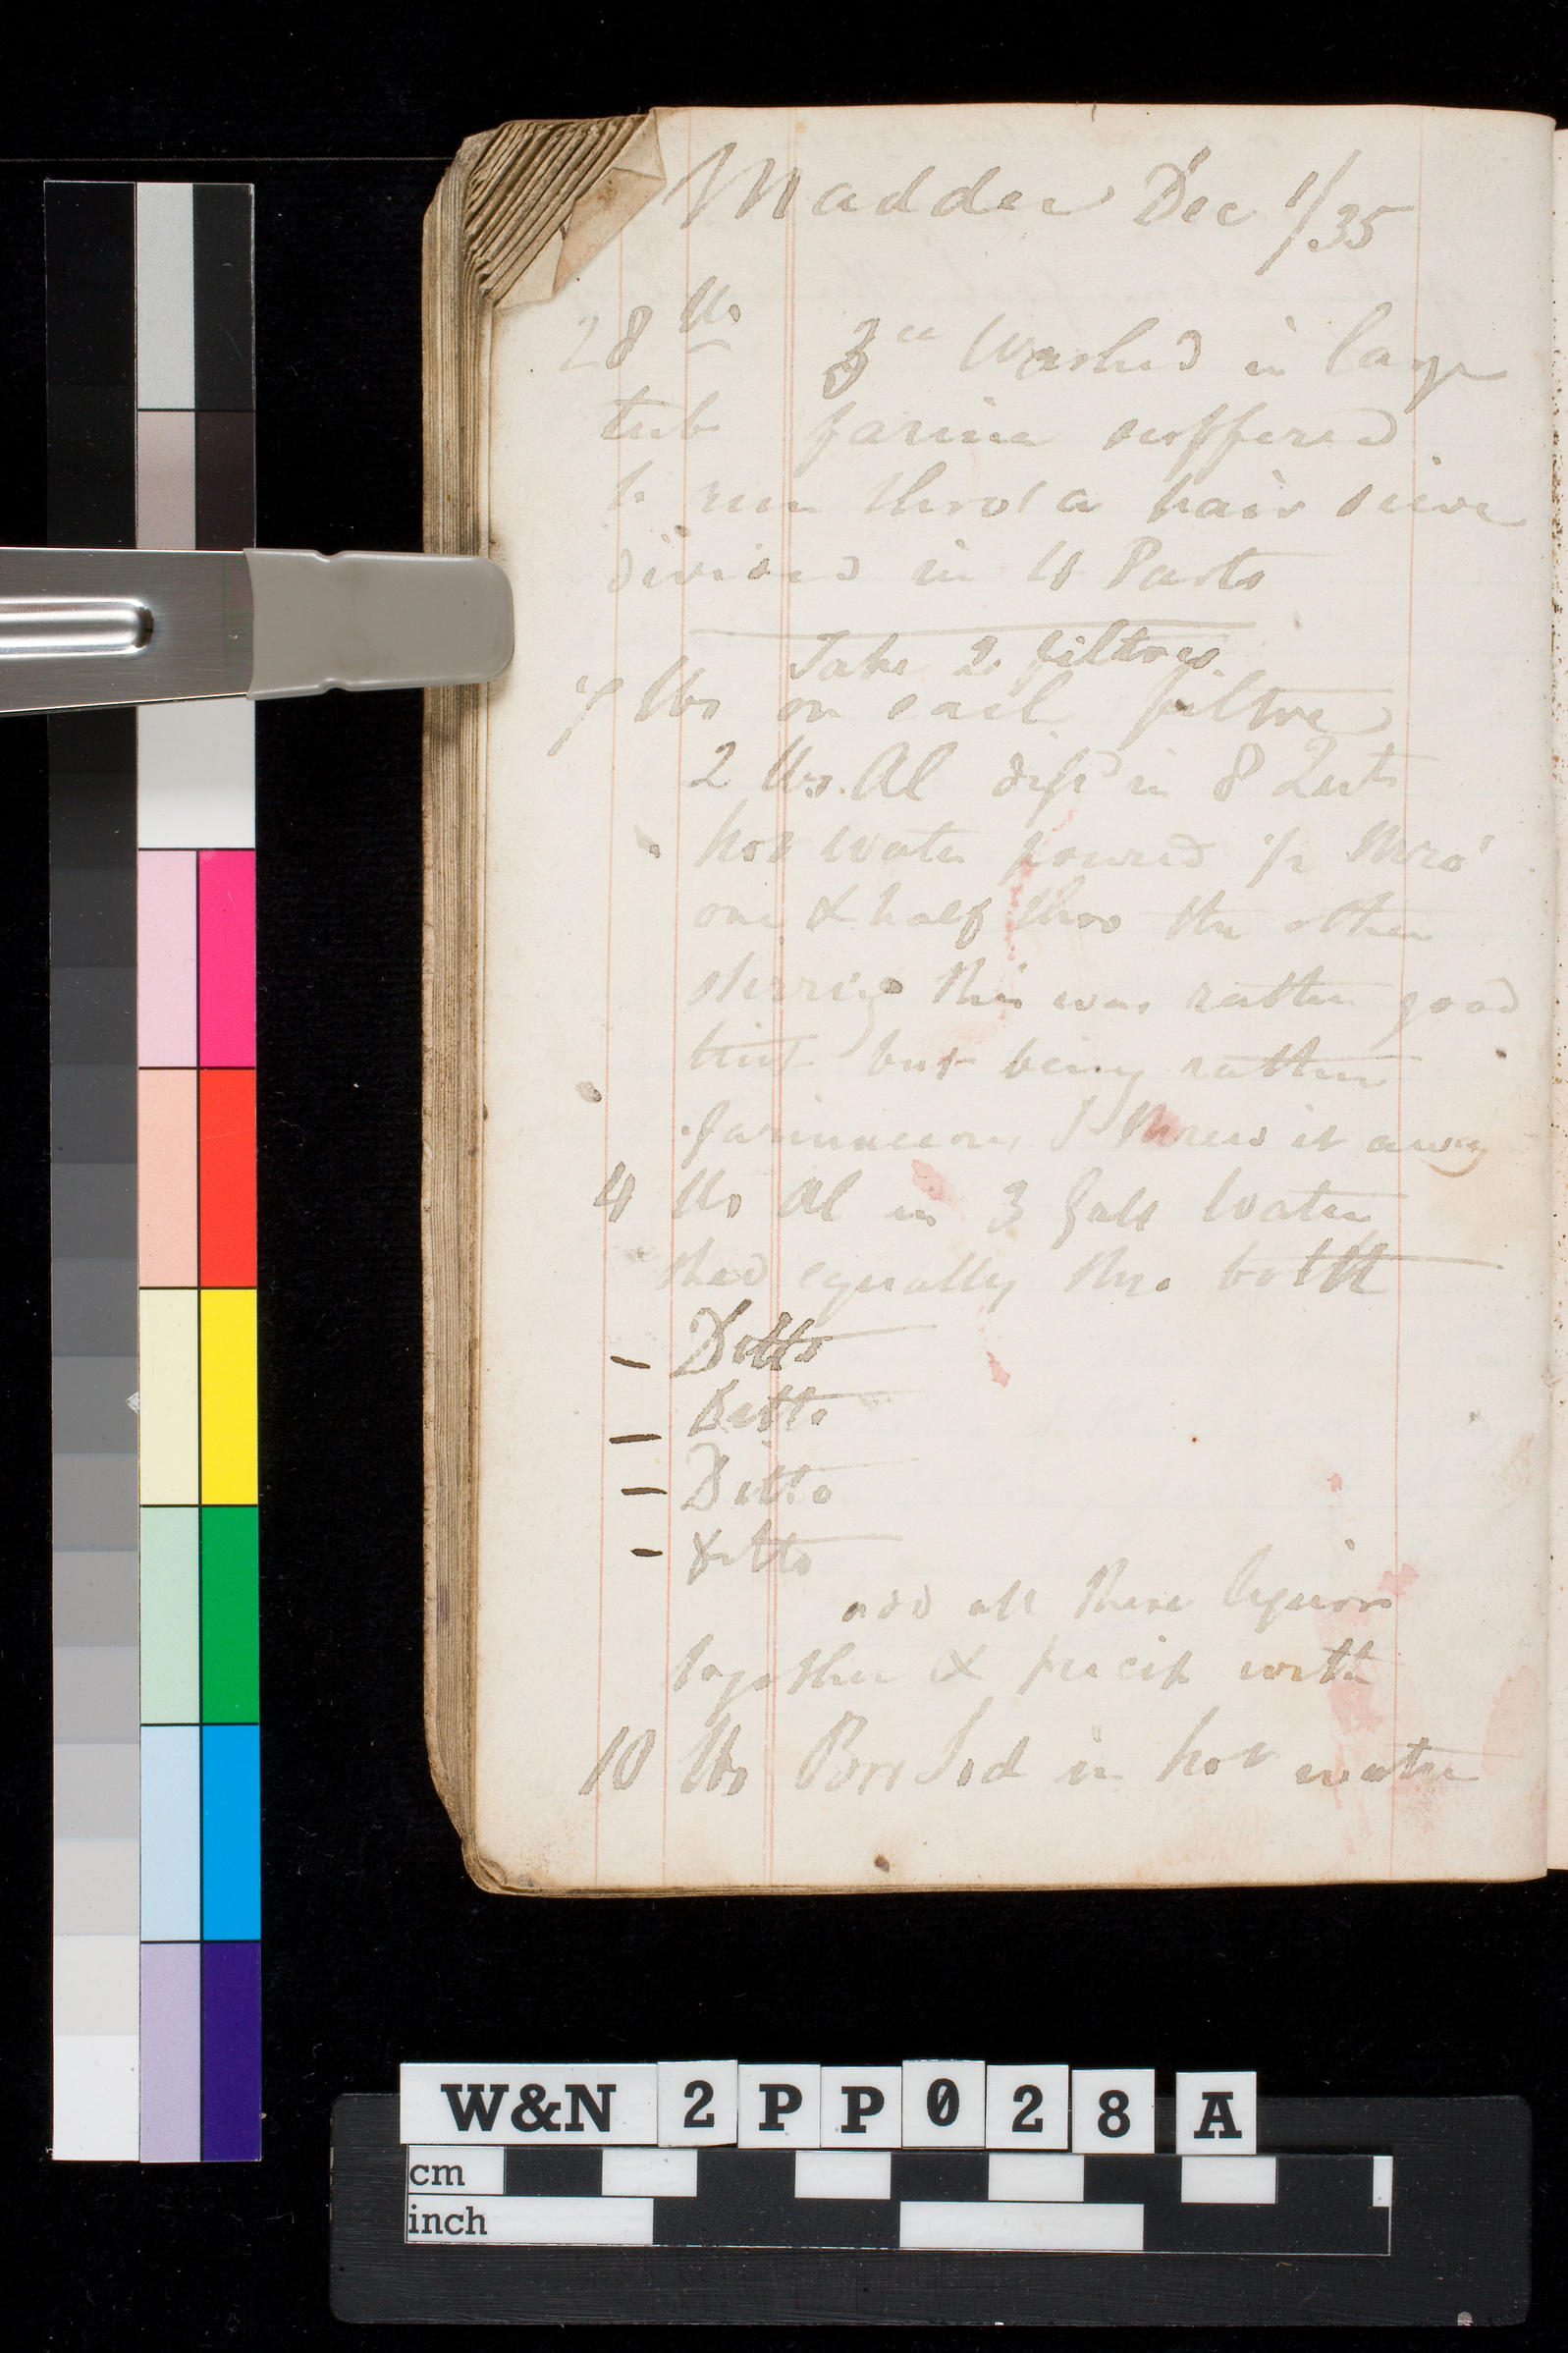 Madder Dec 1/35
28 lbs 3ce Washed in large
tub farina suffered
to run thro' a hair sieve
divided in 4 Parts
Take 2 filtres
7 lbs on each filtre
2 lbs. Al disd in 8 Qrts
hot water poured 1/2 thro'
one & half thro the other
sterring this was rather good
tint but being rather
farinaceous I threw it away
4 lbs Al in 3 Galls Water
thro equally thro both
— Ditto
— Ditto
— Ditto
- Ditto
add all these liquors
together & precip with
10 lbs Bor Sod in hot water
W&N 2PP028A
cm
inch